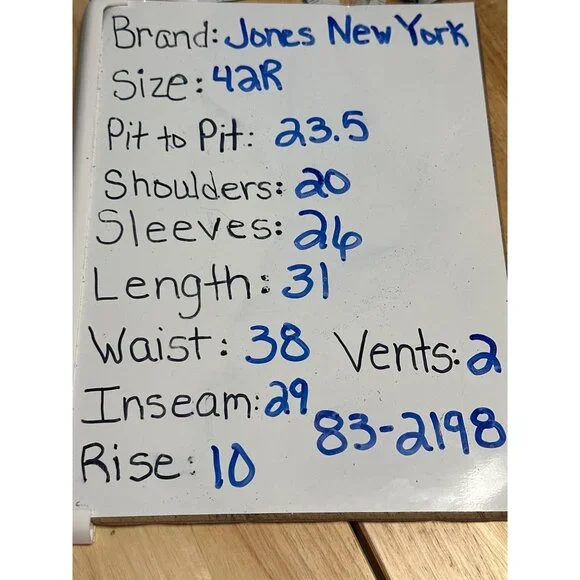 Brand: Jones New York
Size: 42R
Pit to Pit: 23.5
Shoulders: 20
Sleeves: 26
Length: 31
Waist: 38 Vents: 2
Inseam: 29
83-2198
Rise: 10